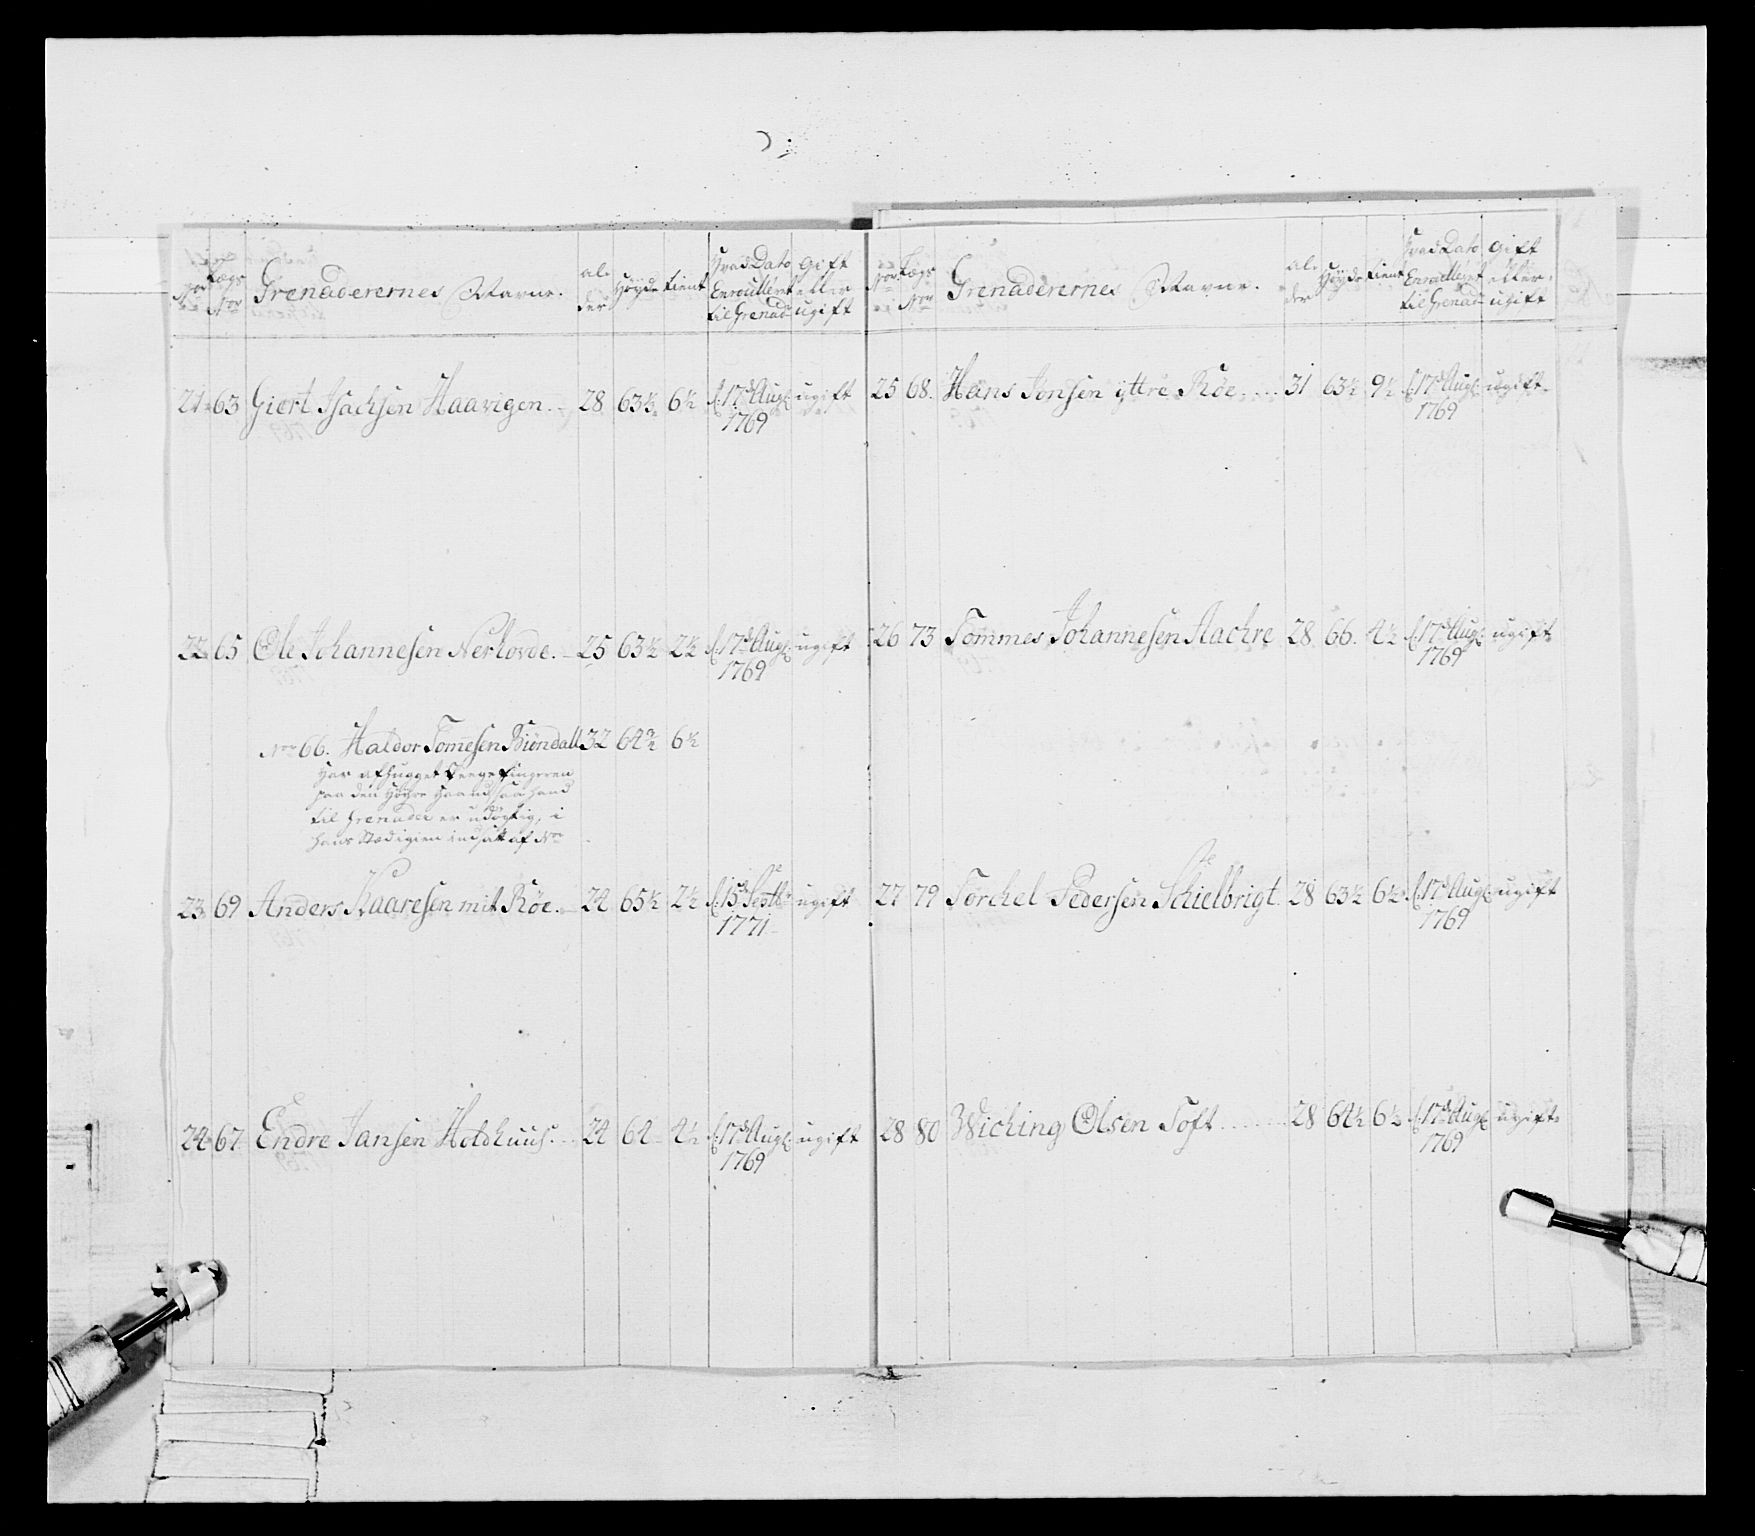 Lægs Nor
Grenaderernes Navne.
Al-der
Høyde
tient
Hvad Dato Enroulleret til Grenad
Gift eller ugift
21 63 Giert Isachsen Haavigen. 28 63½ 6½ d. 17de Aug. ugift
1769
22 65 Ole Johannesen Nerhovde. 25 63½ 2½ d. 17de Aug. ugift
1769
Nor 66. Haldor Tomesen Biöndall 32 64¾ 6½
Har afhugget Peegefingeren
paa den Høyre Haand saa hand
til Grenadeer er udögtig, i
hans Stæd igien indsatt af Nor
23 69 Anders Kaaresen mit Röe. 24 65½ 2½ d. 15de Septbr ugift
1771
24 67 Endre Jansen Holdhuus. 24 64 4½ d. 17de Aug. ugift
1769
Nor
Lægs Nor
Grenaderernes Navne.
Al-der
Høyde
tient
Hvad Dato Enroulleret til Grenad
Gift eller ugift
25 68. Hans Jonsen yttre Röe 31 63½ 9½ d. 17de Aug. ugift
1769
26 73 Tommes Johannesen Aachre 28 66. 4½ d. 17de Aug. ugift
1769
27 79 Torchel Pedersen Schielbrigt 28 63½ 6½ d. 17de Aug. ugift
1769
28 80 Wiching Olsen Toft 28 64½ 6½ d. 17de Aug. ugift
1769